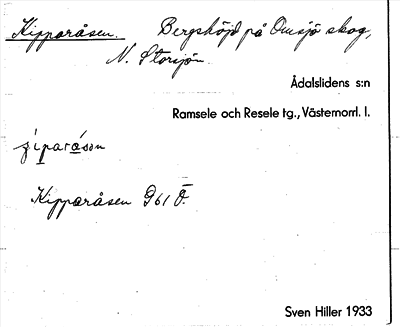 Kipparåsen. Bergshöjd på Omsjö skog,
N. Storsjön.
Ådalslidens s:n
Ramsele och Resele tg., Västernorrl. l.
Kipparåsen 961 Ö.
Sven Hiller 1933